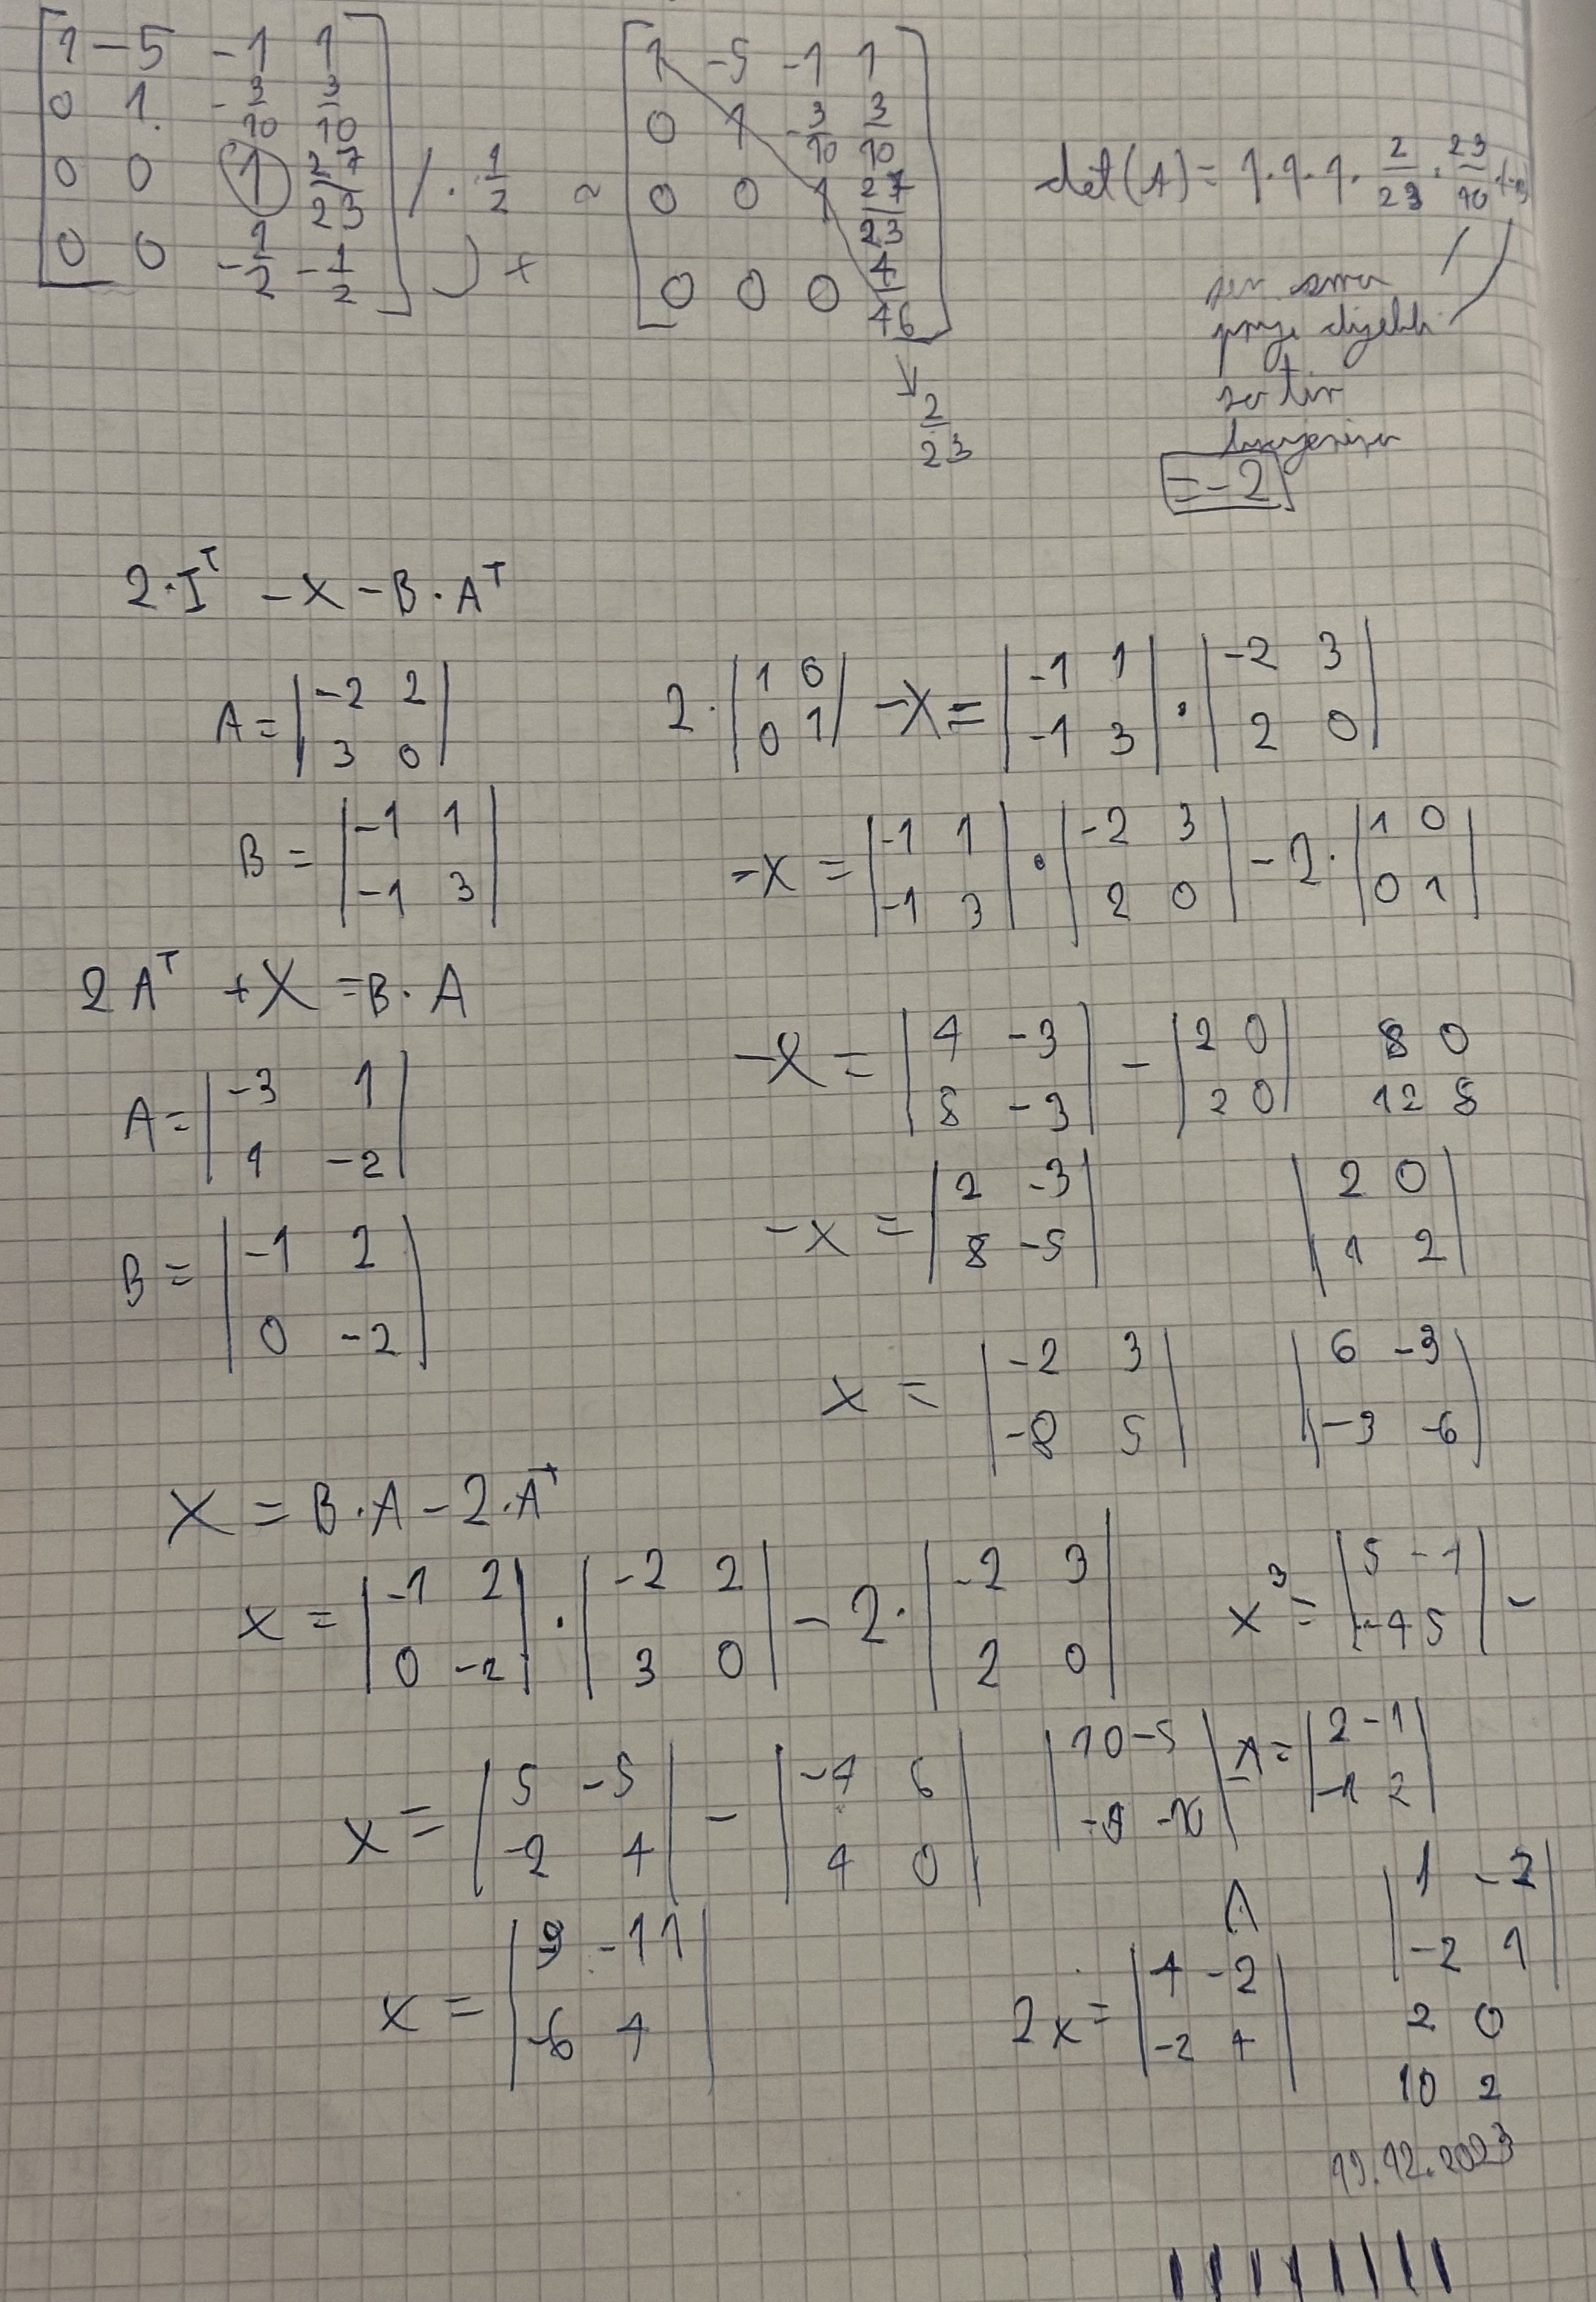 [1 -5 -1 1
0 1 -3/10 3/10
0 0 1 27/23
0 0 -1/2 -1/2] / · 1/2 +
~ [1 -5 -1 1
0 1 -3/10 3/10
0 0 1 27/23
0 0 0 4/46]
↓ 2/23
det(A) = 1·1·1· 2/23 · 23/10
= -2
2·I^T - X - B·A^T
A = |-2 2
3 0|
B = |-1 1
-1 3|
2·|1 0
0 1| -X = |-1 1
-1 3| · |-2 3
2 0|
-X = |-1 1
-1 3| · |-2 3
2 0| - 2·|1 0
0 1|
2A^T + X = B·A
A = |-3 1
1 -2|
B = |-1 2
0 -2|
-X = |4 -3
8 -3| - |2 0
2 0|
8 0
12 8
-X = |2 -3
8 -5|
|2 0
1 2|
X = |-2 3
-8 5|
|6 -3
-3 -6|
X = B·A - 2·A^T
X = |-1 2
0 -2| · |-2 2
3 0| - 2·|-2 3
2 0|
X^3 = |5 -1
-4 5| -
X = |5 -5
-2 4| - |-4 6
4 0|
A = |2 -1
-1 2|
X = |9 -11
-6 4|
A
2X = |4 -2
-2 4|
|1 -2
-2 1|
2 0
10 2
19.12.2023